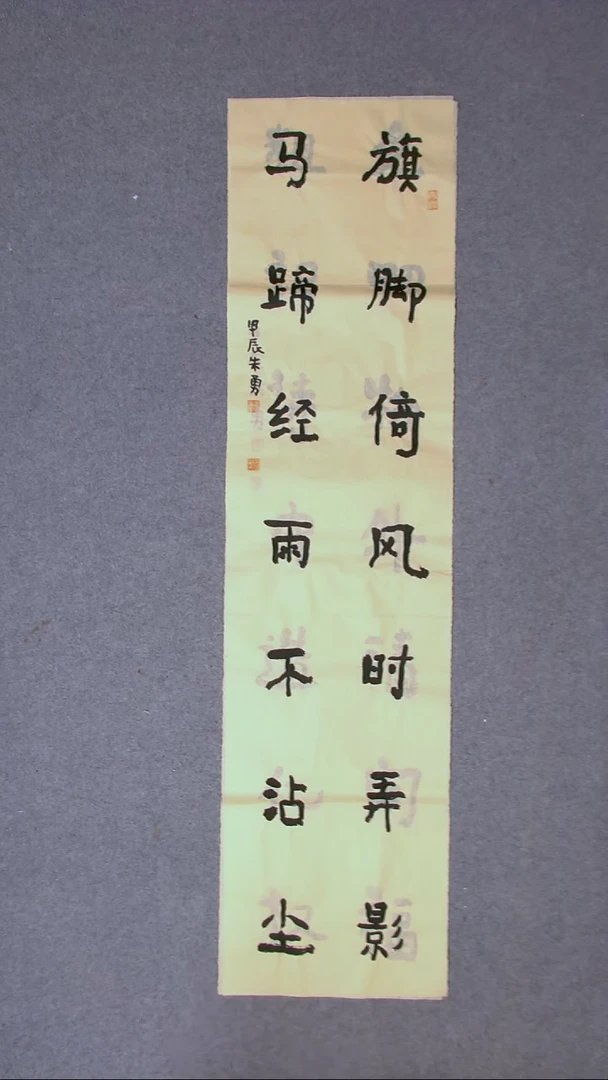 旗脚倚风时弄影
马蹄经雨不沾尘
甲辰朱勇